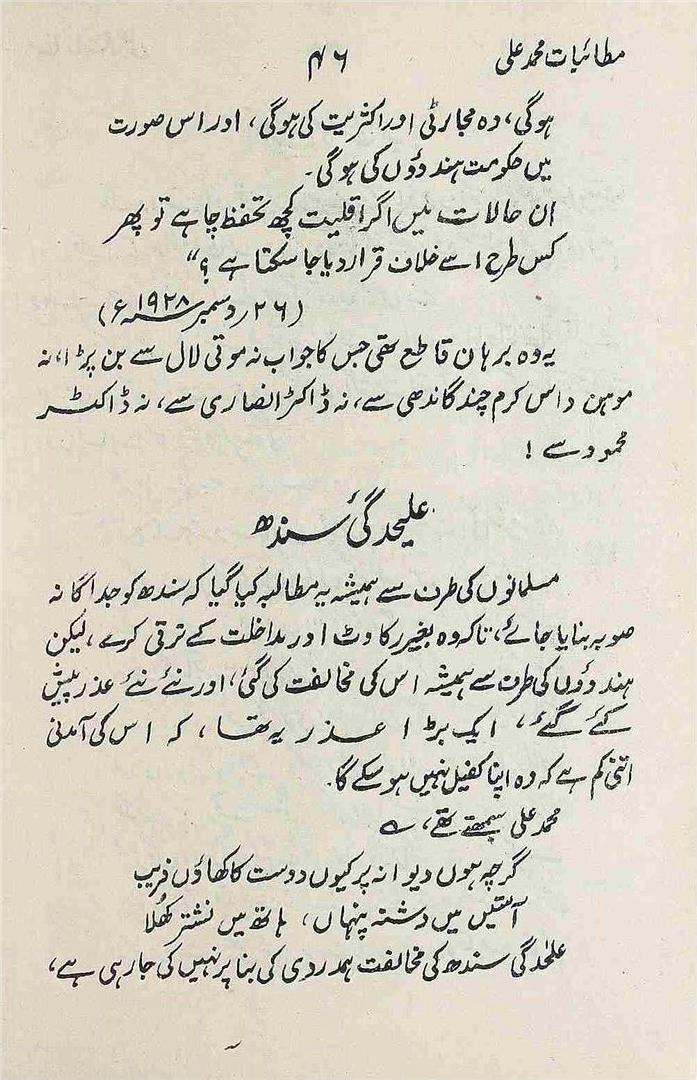 مطائبات محمد علی ۴۶
ہوگی، وہ مجارٹی اور اکثریت کی ہوگی، اور اس صورت
میں حکومت ہندوؤں کی ہوگی۔
ان حالات میں اگر اقلیت کچھ تحفظ چاہے تو پھر
کس طرح اسے خلاف قرار دیا جا سکتا ہے؟“
(۲۶ دسمبر ۱۹۲۸ء)
یہ وہ برہان قاطع تھی جس کا جواب نہ موتی لال سے بن پڑا، نہ
موہن داس کرم چند گاندھی سے، نہ ڈاکٹر انصاری سے، نہ ڈاکٹر
محمود سے!
علیحدگئ سندھ
مسلمانوں کی طرف سے ہمیشہ یہ مطالبہ کیا گیا کہ سندھ کو جداگانہ
صوبہ بنایا جائے، تاکہ وہ بغیر رکاوٹ اور مداخلت کے ترقی کرے، لیکن
ہندوؤں کی طرف سے ہمیشہ اس کی مخالفت کی گئی، اور نئے نئے عذر پیش
کئے گئے، ایک بڑا عذر یہ تھا، کہ اس کی آمدنی
اتنی کم ہے کہ وہ اپنا کفیل نہیں ہو سکے گا۔
محمد علی سمجھتے تھے، ؎
گرچہ ہوں دیوانہ پر کیوں دوست کا کھاؤں فریب
آستیں میں دشنہ پنہاں، ہاتھ میں نشتر کھُلا
علحدگی سندھ کی مخالفت ہمدردی کی بنا پر نہیں کی جا رہی ہے،